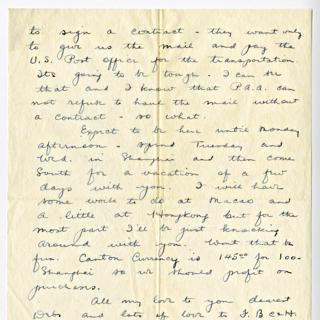 to sign a contract - they want only
to give us the mail and pay the
U.S. Post office for the transportation.
Its going to be tough. I can see
that and I know that P.A.A. can
not refuse to haul the mail without
a contract - so what.
Expect to be here until Monday
afternoon - spend Tuesday and
Wed. in Shanghai and then come
South for a vacation of a few
days with you. I will have
some work to do at Macao and
a little at Hongkong but for the
most part I'll be just knocking
around with you. Wont that be
fun. Canton Currency is 145⁰⁰ for 100-
Shanghai so we should profit on
purchases.
All my love to you dearest
and lots of love to